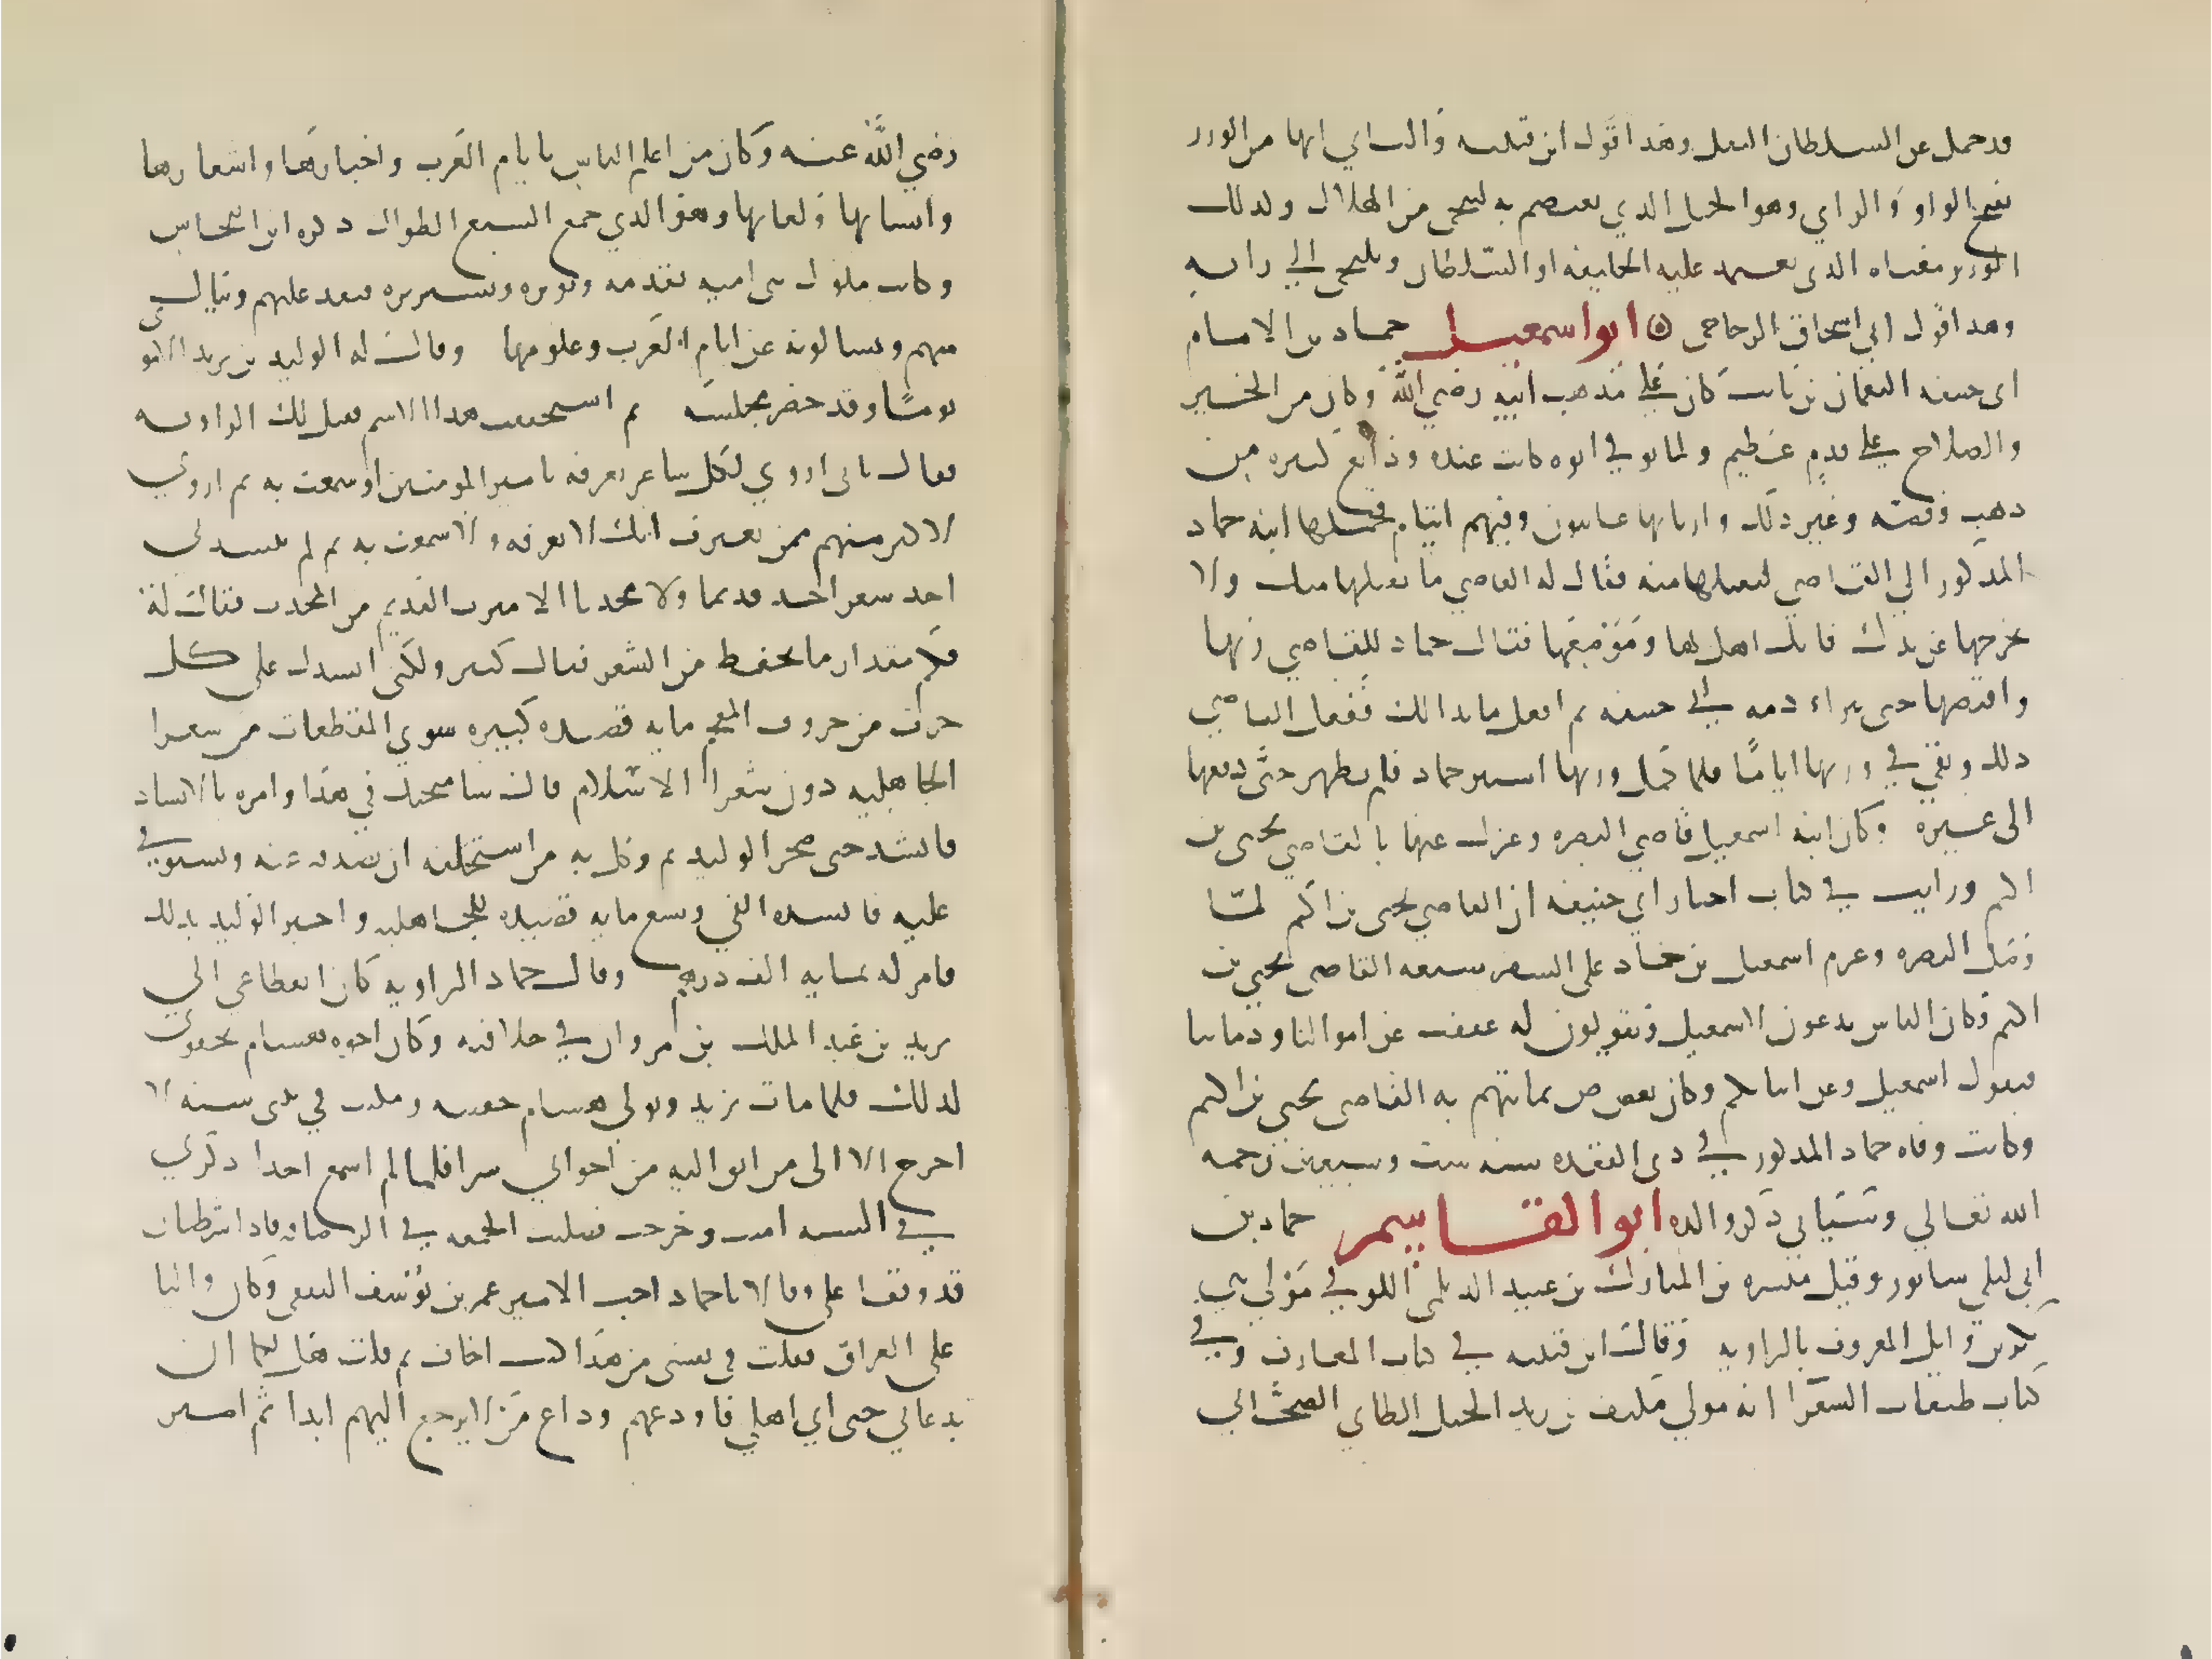 قد حمل عن السلطان الثقل وهذا قول ابن قتيبة والثاني انها من الوزر
بفتح الواو والزاي وهو الحبل الذي يعتصم به لينجى من الهلاك وكذلك
الوزير معناه الذي يعتمد عليه الخليفه او السلطان ويلتجى الي رايه
وهذا قول ابي اسحاق الزجاجي ابو اسمعيل حماد بن الامام
ابي حنيفه النعمان بن ثابت كان علي مذهب ابيه رضي الله وكان من الخير
والصلاح علي قدم عظيم ولما توفي ابوه كانت عنده ودايع كثيره من
ذهب وفضه وغير ذلك واربابها غايبون وفيهم ايتام فحملها ابنه حماد
المذكور الي القاضي ليتسلمها منه فقال له القاضي ما نقبلها منك ولا
نخرجها عن يدك فانك اهل لها وموضعها فقال حماد للقاضي زنها
واقبضها حتى تبراء ذمه ابي حنيفه ثم افعل ما بدا لك ففعل القاضي
ذلك وبقي في وزنها اياما فلما كمل وزنها استتر حماد فلم يظهر حتى دفعها
الى غيره وكان ابنه اسمعيل قاضي البصره وعزل عنها بالقاضي يحيى بن
اكثم ورايت في كتاب اخبار ابي حنيفه ان القاضي يحيى بن اكثم لما
وصل البصره وعزم اسمعيل بن حماد على السفر شيعه القاضي يحيى بن
اكثم وكان الناس يدعون لاسمعيل ويقولون له عففت عن اموالنا ودماينا
فيقول اسمعيل وعن ابنايكم وكان يعرض بما يتهم به القاضي يحيى بن اكثم
وكانت وفاه حماد المذكور في ذي القعده سنه ست وسبعين رحمه
الله تعالي وسياتي ذكر والده ابو القاسم حماد بن
ابي ليلي سابور وقيل ميسره بن المبارك بن عبيد الديلمي الكوفي مولي بني
بكر بن وايل المعروف بالراويه وقال ابن قتيبه في كتاب المعارف وفي
كتاب طبقات الشعرا انه مولي مكنف بن زيد الخيل الطاي الصحابي
رضي الله عنه وكان من اعلم الناس بايام العرب واخبارها واشعارها
وانسابها ولغاتها وهو الذي جمع السبع الطوال ذكره ابن النحاس
وكانت ملوك بني اميه تقدمه وتوثره وتستزيره فيفد عليهم وينال
منهم ويسالونه عن ايام العرب وعلومها وقال له الوليد بن يزيد الاموي
يوما وقد حضر مجلسه بم استحققت هذا الاسم فقيل لك الراويه
فقال باني اروي لكل شاعر تعرفه يا امير المومنين او سمعت به ثم اروي
لاكثر منهم ممن تعترف انك لا تعرفه ولا سمعت به ثم لم ينشدني
احد شعر احد قديما ولا محدثا الا ميزت القديم من المحدث فقال له
فكم مقدار ما تحفظ من الشعر فقال كثير ولكني انشدك على كل
حرف من حروف المعجم مايه قصيده كبيره سوي المقطعات من شعرا
الجاهليه دون شعرا الاسلام قال سامتحنك في هذا وامره بالانشاد
فانشد حتى ضجر الوليد ثم وكل به من استحلفه ان يصدقه عنه ويستوفي
عليه فانشده الفي وتسع مايه قصيده للجاهليه واخبر الوليد بذلك
فامر له بمايه الف درهم وقال حماد الراويه كان انقطاعي الي
يزيد بن عبد الملك بن مروان في خلافته وكان اخوه هشام يجفوني
لذلك فلما مات يزيد وتولى هشام خفته ومكثت في بيتي سنه لا
اخرج الا الى من اثق اليه من اخواني سرا فلما لم اسمع احدا ذكرني
في السنه امنت وخرجت فصليت الجمعه في الرصافه فاذا شرطيان
قد وقفا علي وقالا يا حماد اجب الامير عمر بن يوسف الثقفي وكان واليا
على العراق فقلت في نفسي من هذا كنت اخاف ثم قلت هل لكما ان
تدعاني حتى اتي اهلي فاودعهم وداع من لا يرجع اليهم ابدا ثم اسير